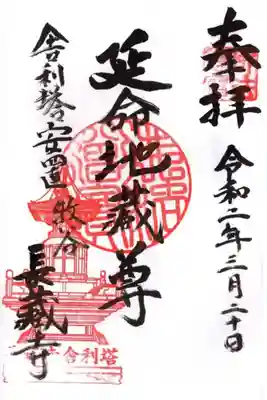 奉拝
令和二年三月二十日
延命地蔵尊
舎利塔安置
長蔵寺
塔利舎